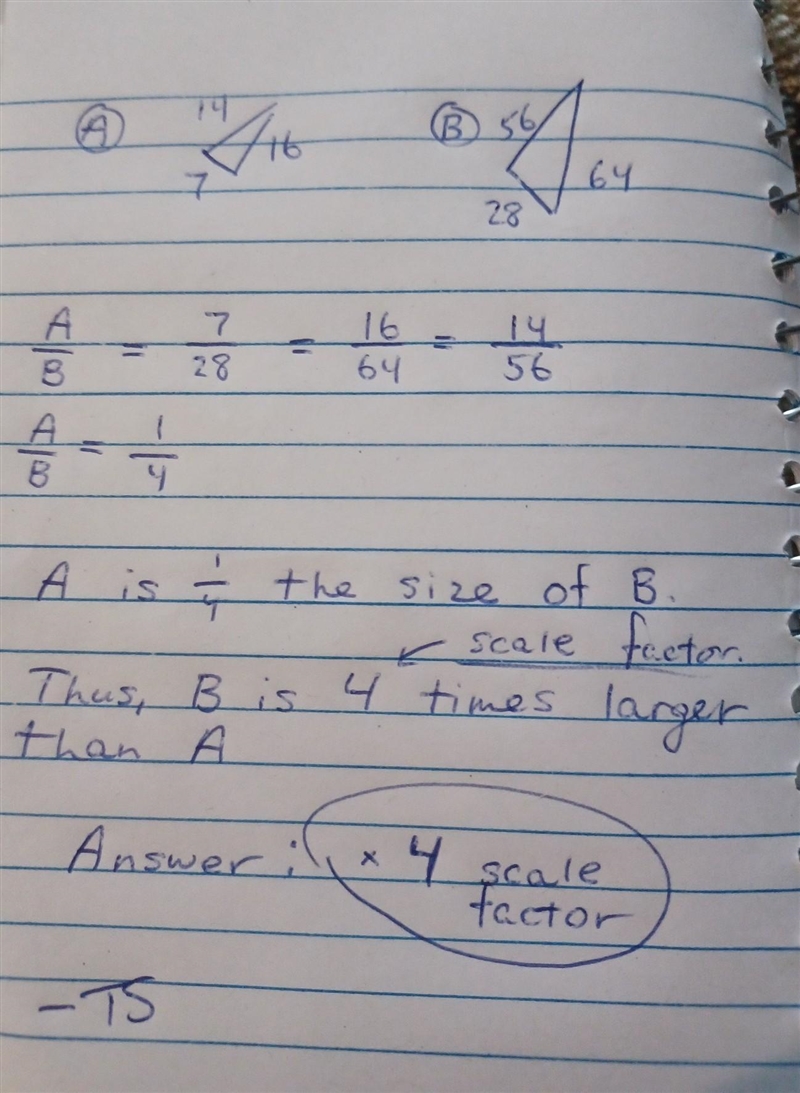 A 14 16 7
B 56 64 28
A/B = 7/28 = 16/64 = 14/56
A/B = 1/4
A is 1/4 the size of B.
scale factor.
Thus, B is 4 times larger
than A
Answer: x 4 scale
factor
- TS